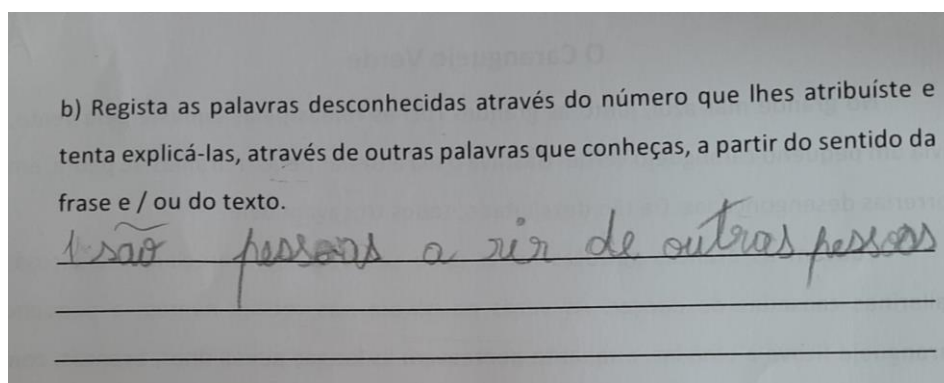 b) Regista as palavras desconhecidas através do número que lhes atribuíste e
tenta explicá-las, através de outras palavras que conheças, a partir do sentido da
frase e / ou do texto.
1- são pessoas a rir de outras pessoas